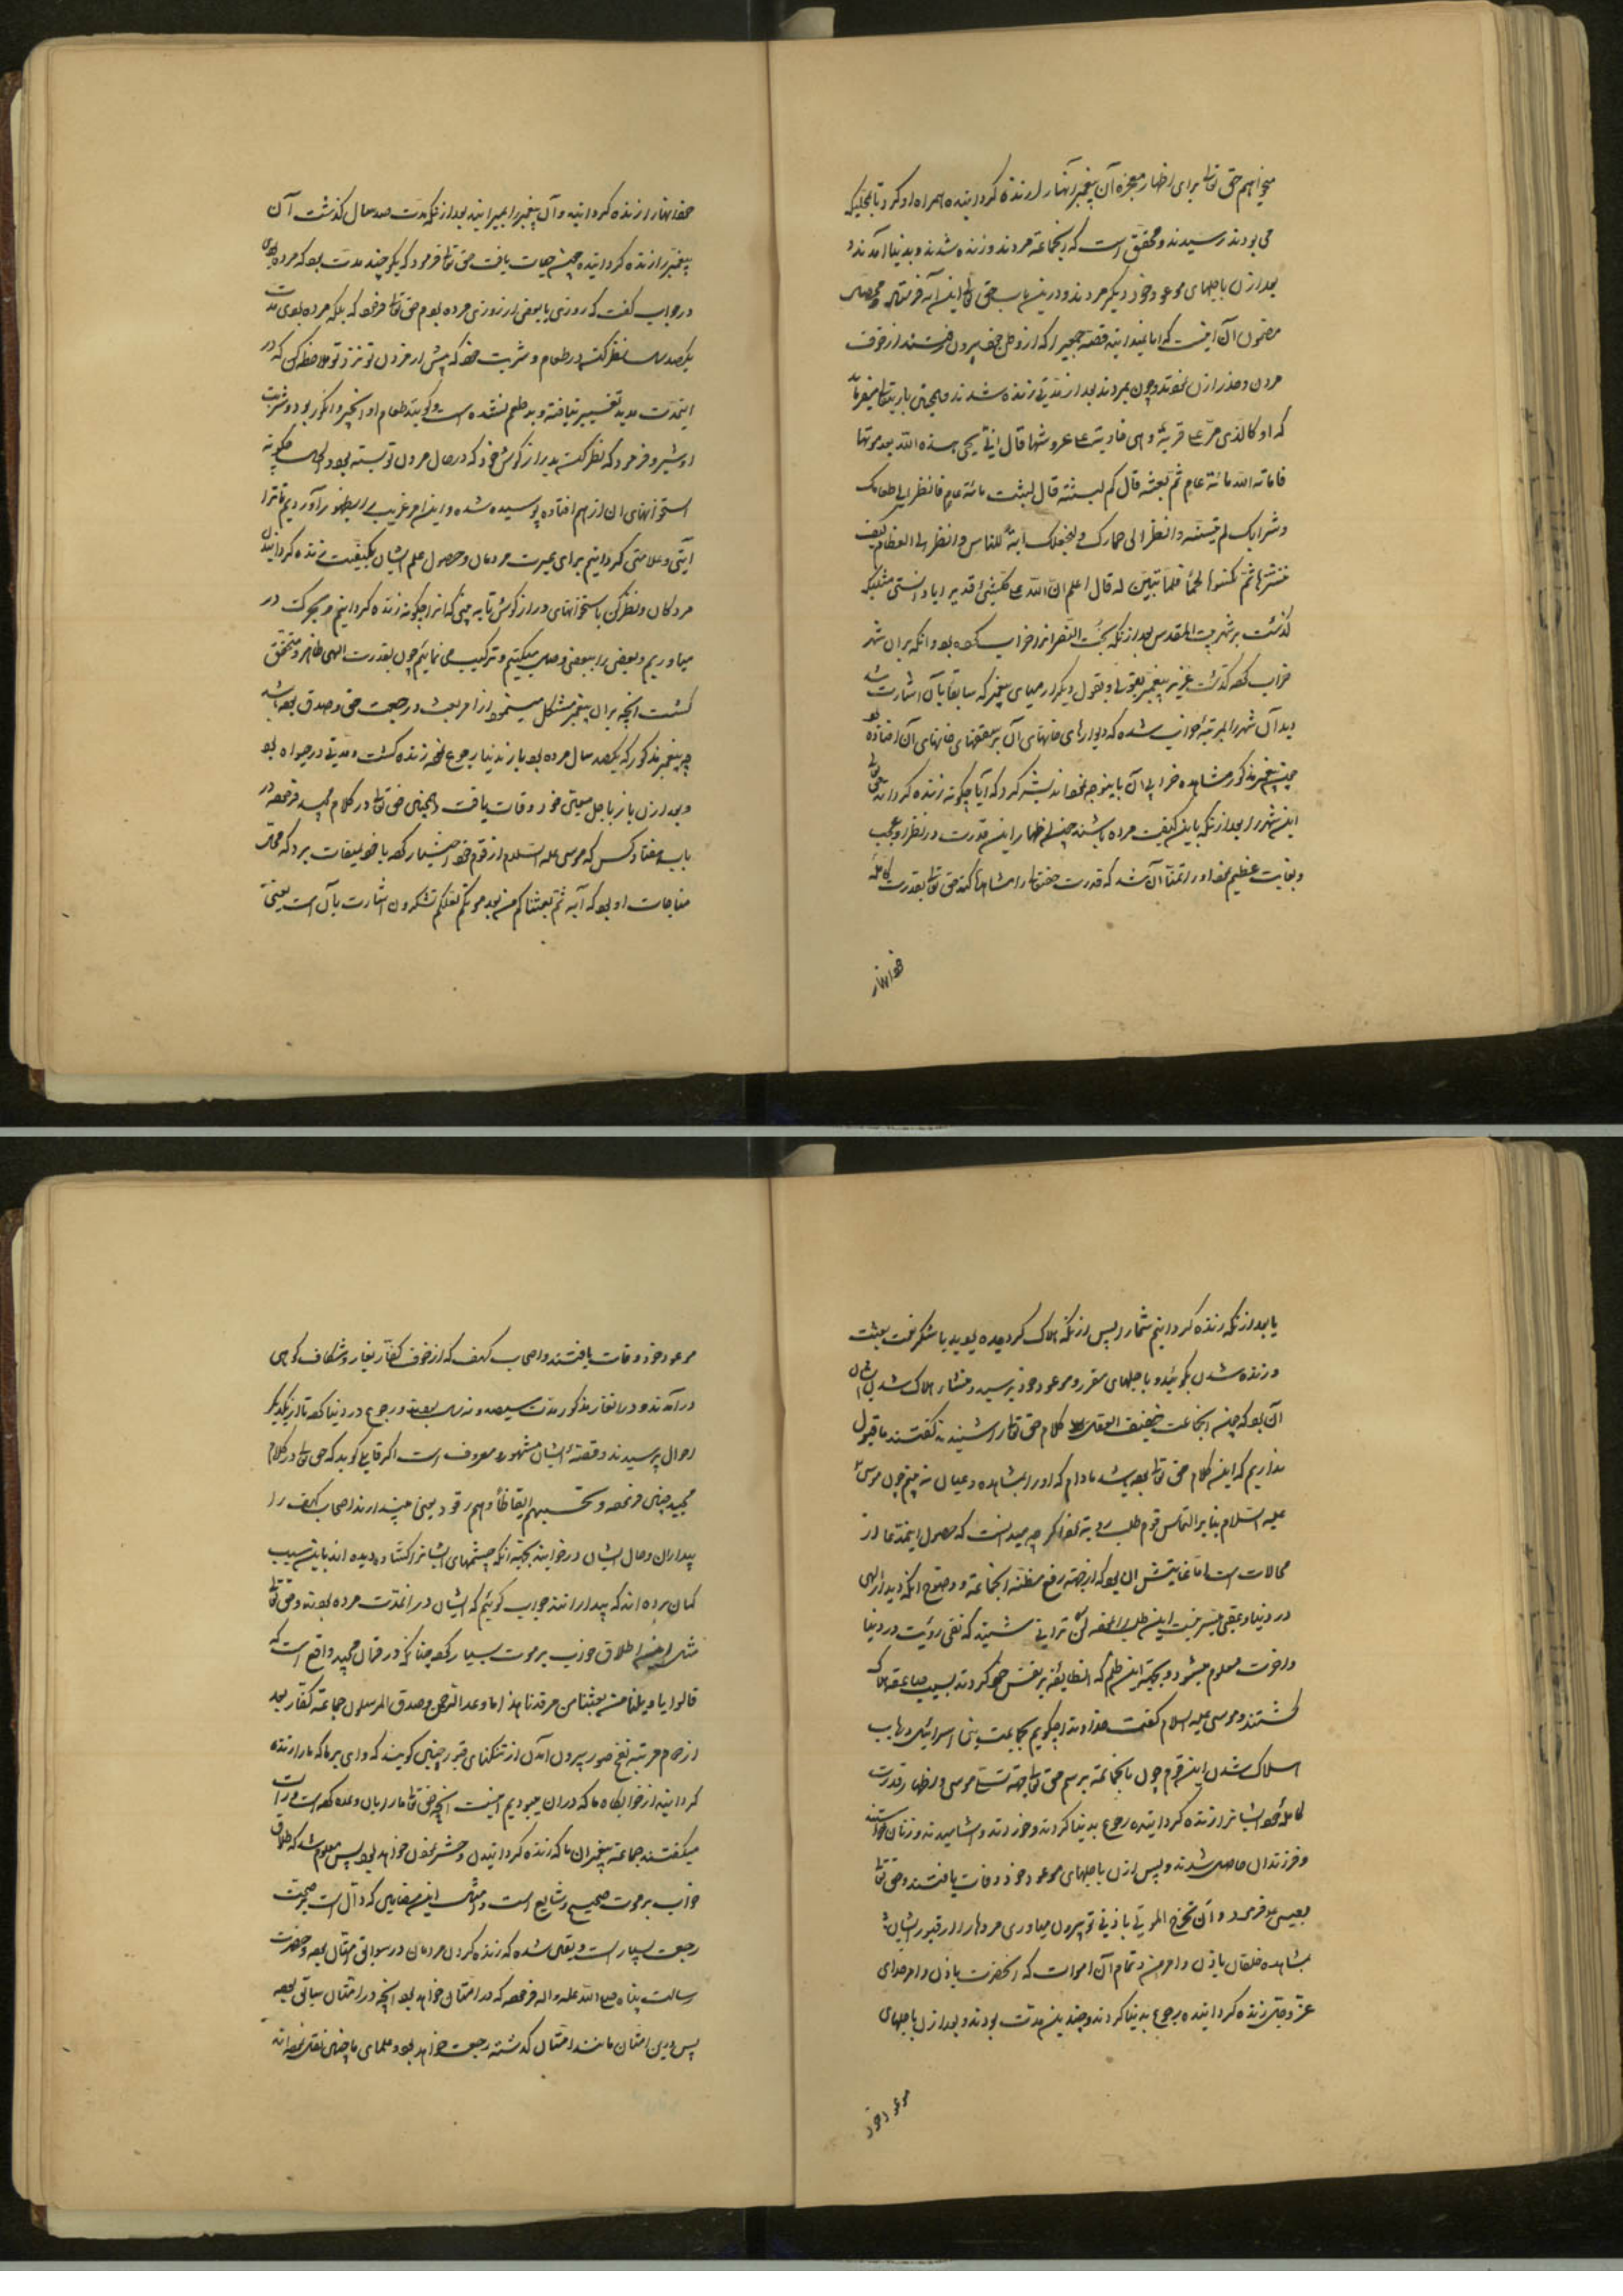 میخواهم حق تعالی برای اظهار معجزه آن پیغمبر آنها را زنده کردانیده همراه او کرد تا بجائیکه
می بودند رسیدند و محقق است که آنجماعة مردند و زنده شدند و بدنیا آمدند و
بعد از آن باجلهای موعود خود دیکر مردند و درین باب حق تعالی این آیه فرستاد
مضمون آن اینست که ایا ندیدانید قصه جمعیرا که از وطن خود بیرون رفتند از خوف
مردن و حذر از آن نمودند و چون بمردند بعد از مدتی زنده شدند و همچنین باریتعالی میفرماید
که او کالذی مرّ علی قریة و هی خاویة علی عروشها قال انّی یحیی هذه الله بعد موتها
فاماته الله مائة عام ثمّ بعثه قال کم لبثت قال لبثت مائة عام فانظر الی طعامک
و شرابک لم یتسنّه و انظر الی حمارک و لنجعلک آیة للناس و انظر الی العظام کیف
ننشزها ثمّ نکسوها لحماً فلمّا تبیّن له قال اعلم انّ الله علی کلّ شیئ قدیر ایا دانستی مثلیکه
کذشت بر شهر بیت المقدس بعد از آنکه بخت النصر آنرا خراب کرده بود و آنکه بر آن شهر
خراب کرده کذشت عزیر پیغمبر بقولی و بقول دیکر ارمیای پیغمبر که سابقا بآن اشارت شد
دید آن شهر را بمرتبه خراب شده که دیوارهای خانهای آن بر سقفهای خانهای آن افتاده بود
پیغمبر مذکور مشاهده خرابی آن باینوجه نمود اندیشه کرد که آیا چکونه زنده کرداند حق تعالی
این شهر را بعد از آنکه باین کیفیت مرده باشند چون اظهار این قدرت در نظر او عجب
و بغایت عظیم نمود او را تمنّا آن شد که قدرت حقتعالی را مشاهده کند حق تعالی بقدرت کامله
خود آنها را
خود آنها را زنده کردانید و آن پیغمبر را بمیرانید بعد از آنکه مدت صد سال کذشت آن
پیغمبر را زنده کردانیده چون حیات یافت حق تعالی فرمود که یکو چند مدت بود که مرده بودی
در جواب کفت که روزی یا بعضی از روزی مرده بودم حق تعالی فرمود که بلکه مرده بودی مدت
یکصد سال نظر کن در طعام و شربت خود که پیش از مردن تو نزد تو ملاحظه کن که در
اینمدت مدید تغییر نیافته و بدطعم نشده است و کویند طعام او انجیر و انکور بود و شربت
او شیر و فرمود که نظر کن بدراز کوش خود که در حال مردن تو بسته بود و الحال چکونه
استخوانهای آن از هم افتاده پوسیده شده و این امر غریب را بظهور آوردیم تا ترا
آیتی و علامتی کردانیم برای عبرت مردمان و حصول علم ایشان بکیفیت زنده کردانیدن
مردکان و نظر کن باستخوانهای دراز کوش تا به بینی که آنرا چکونه زنده کردانیم و بحرکت در
میاوریم و بعضی را ببعضی وصل میکنیم و ترکیب می نمائیم چون بقدرت الهی ظاهر و متحقق
کشت آنچه بر آن پیغمبر مشکل مینمود از امر بعث و رجعت حق و صدق بوده باشد
چه پیغمبر مذکور که یکصد سال مرده بود باز بدنیا رجوع نموده زنده کشت و مدتی در حیوة بود
و بعد از آن باز باجل معین خود وفات یافت و همچنین حق تعالی در کلام مجید فرموده در
باب هفتاد کس که موسی علیه السلام از قوم خود اختیار کرده با خود بمیقات برد که محل
مناجات او بود که آیه ثمّ بعثناکم من بعد موتکم لعلکم تشکرون اشارت بآن است یعنی
یا بعد از آنکه زنده کردانیم شما را پس از آنکه هلاک کردیده بودید تا شکر نعمت بعثت
و زنده شدن بکوئید و باجلهای مقرر و موعود خود برسید و منشاء هلاک شدن ایشان
آن بود که چون آنجماعت ضعیف العقل کلام حق تعالی را شنیدند کفتند ما قبول
نداریم که این کلام حق تعالی بوده باشد مادام که او را بمشاهده و عیان نه بینیم چون موسی
علیه السلام بنابر التماس قوم طلب رویة نمود اکر چه میدانست که حصول اینمدعا از
محالات است اما غایتش آن بود که از جهة رفع مظنه آنجماعة و وضوح آنکه دیدار الهی
در دنیا و عقبی میسر نیست این طلب را نموده لن ترانی شنید که نفی رؤیت در دنیا
و اخرت معلوم میشود و بجهة این ظلم که آنطایفه بر نفس خود کردند بسبب صاعقه هلاک
کشتند و موسی علیه السلام کفت خداوندا چکویم بجماعت بنی اسرائیل در باب
هلاک شدن این قوم چون بآنجماعة برسم حق تعالی جهة تسلی موسی و اظهار قدرت
کامله خود ایشانرا زنده کردانیده رجوع بدنیا کردند و خوردند و آشامیدند و زنان خواستند
و فرزندان حاصل شدند و پس از آن باجلهای موعود خود وفات یافتند و حق تعالی
بعیسی میفرمود و ان تخرج الموتی باذنی تو بیرون میاوری مردهارا از قبور ایشان
بمشاهده خلقان باذن و امر من و تمام آن اموات که آنحضرت باذن و امر خدای
عزّ و جلّ زنده کردانیده رجوع بدنیا کردند و چندین مدت بودند و بعد از آن باجلهای
موعود خود
موعود خود وفات یافتند و اصحاب کهف که از خوف کفّار بغار و شکاف کوهی
در آمدند و در انغار مذکور مدت سیصد و نه سال بودند و رجوع در دنیا کرده تا از یکدیکر
احوال پرسیدند و قصه ایشان مشهور و معروف است اکر قایلی کوید که حق تعالی در کلام
مجید چنین فرموده و تحسبهم ایقاظاً و هم رقود یعنی می پندارند اصحاب کهف را
بیداران و حال ایشان در خوابند بجهة آنکه چشمهای ایشانرا کشاده دیده اند باین سبب
کمان برده اند که بیدارانند جواب کوئیم که ایشان در انمدت مرده بودند و حق تعالی
مثل این اطلاق خواب بر موت بسیار کرده چنانکه در قرآن مجید واقع است که
قالوا یا ویلنا من بعثنا من مرقدنا هذا ما وعد الرحمن و صدق المرسلون جماعة کفّار بعد
از تمام مرتبه نفخ صور بیرون آمدن از تنکنای قبور چنین کویند که وای بر ما که ما را زنده
کردانید از خوابکاه ما که در آن میبودیم اینست آنچه حق تعالی ما را بآن وعده کرده است و راست
میکفتند جماعة پیغمبران ما که زنده کردانیدن و حشر نمودن خواهد بود پس معلوم شد که اطلاق
خواب بر موت صحیح و شایع است و امثال این مضامین که دال است بر صحت
رجعت بسیار است و یقین شده که زنده کردن مردمان در سوابق امثال بوده و حضرت
رسالت پناه صلی الله علیه و اله فرموده که در امتان خواهد بود آنچه در امتان سابق بوده
پس درین امتان مانند امتان کذشته رجعت خواهد بود و علمای ما چنین نقل نموده اند